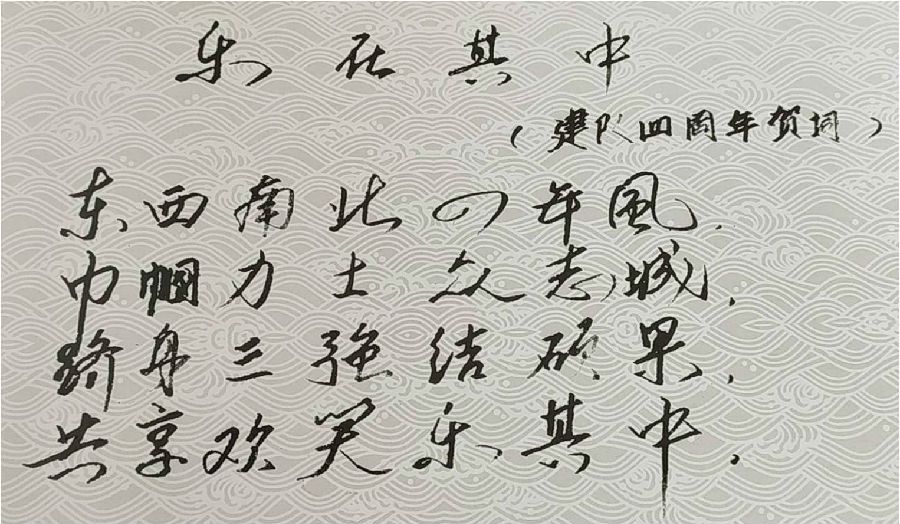 乐在其中
(建队四周年贺词)
东西南北四年風,
巾帼力士众志城,
跻身三强结硕果,
共享欢笑乐其中。